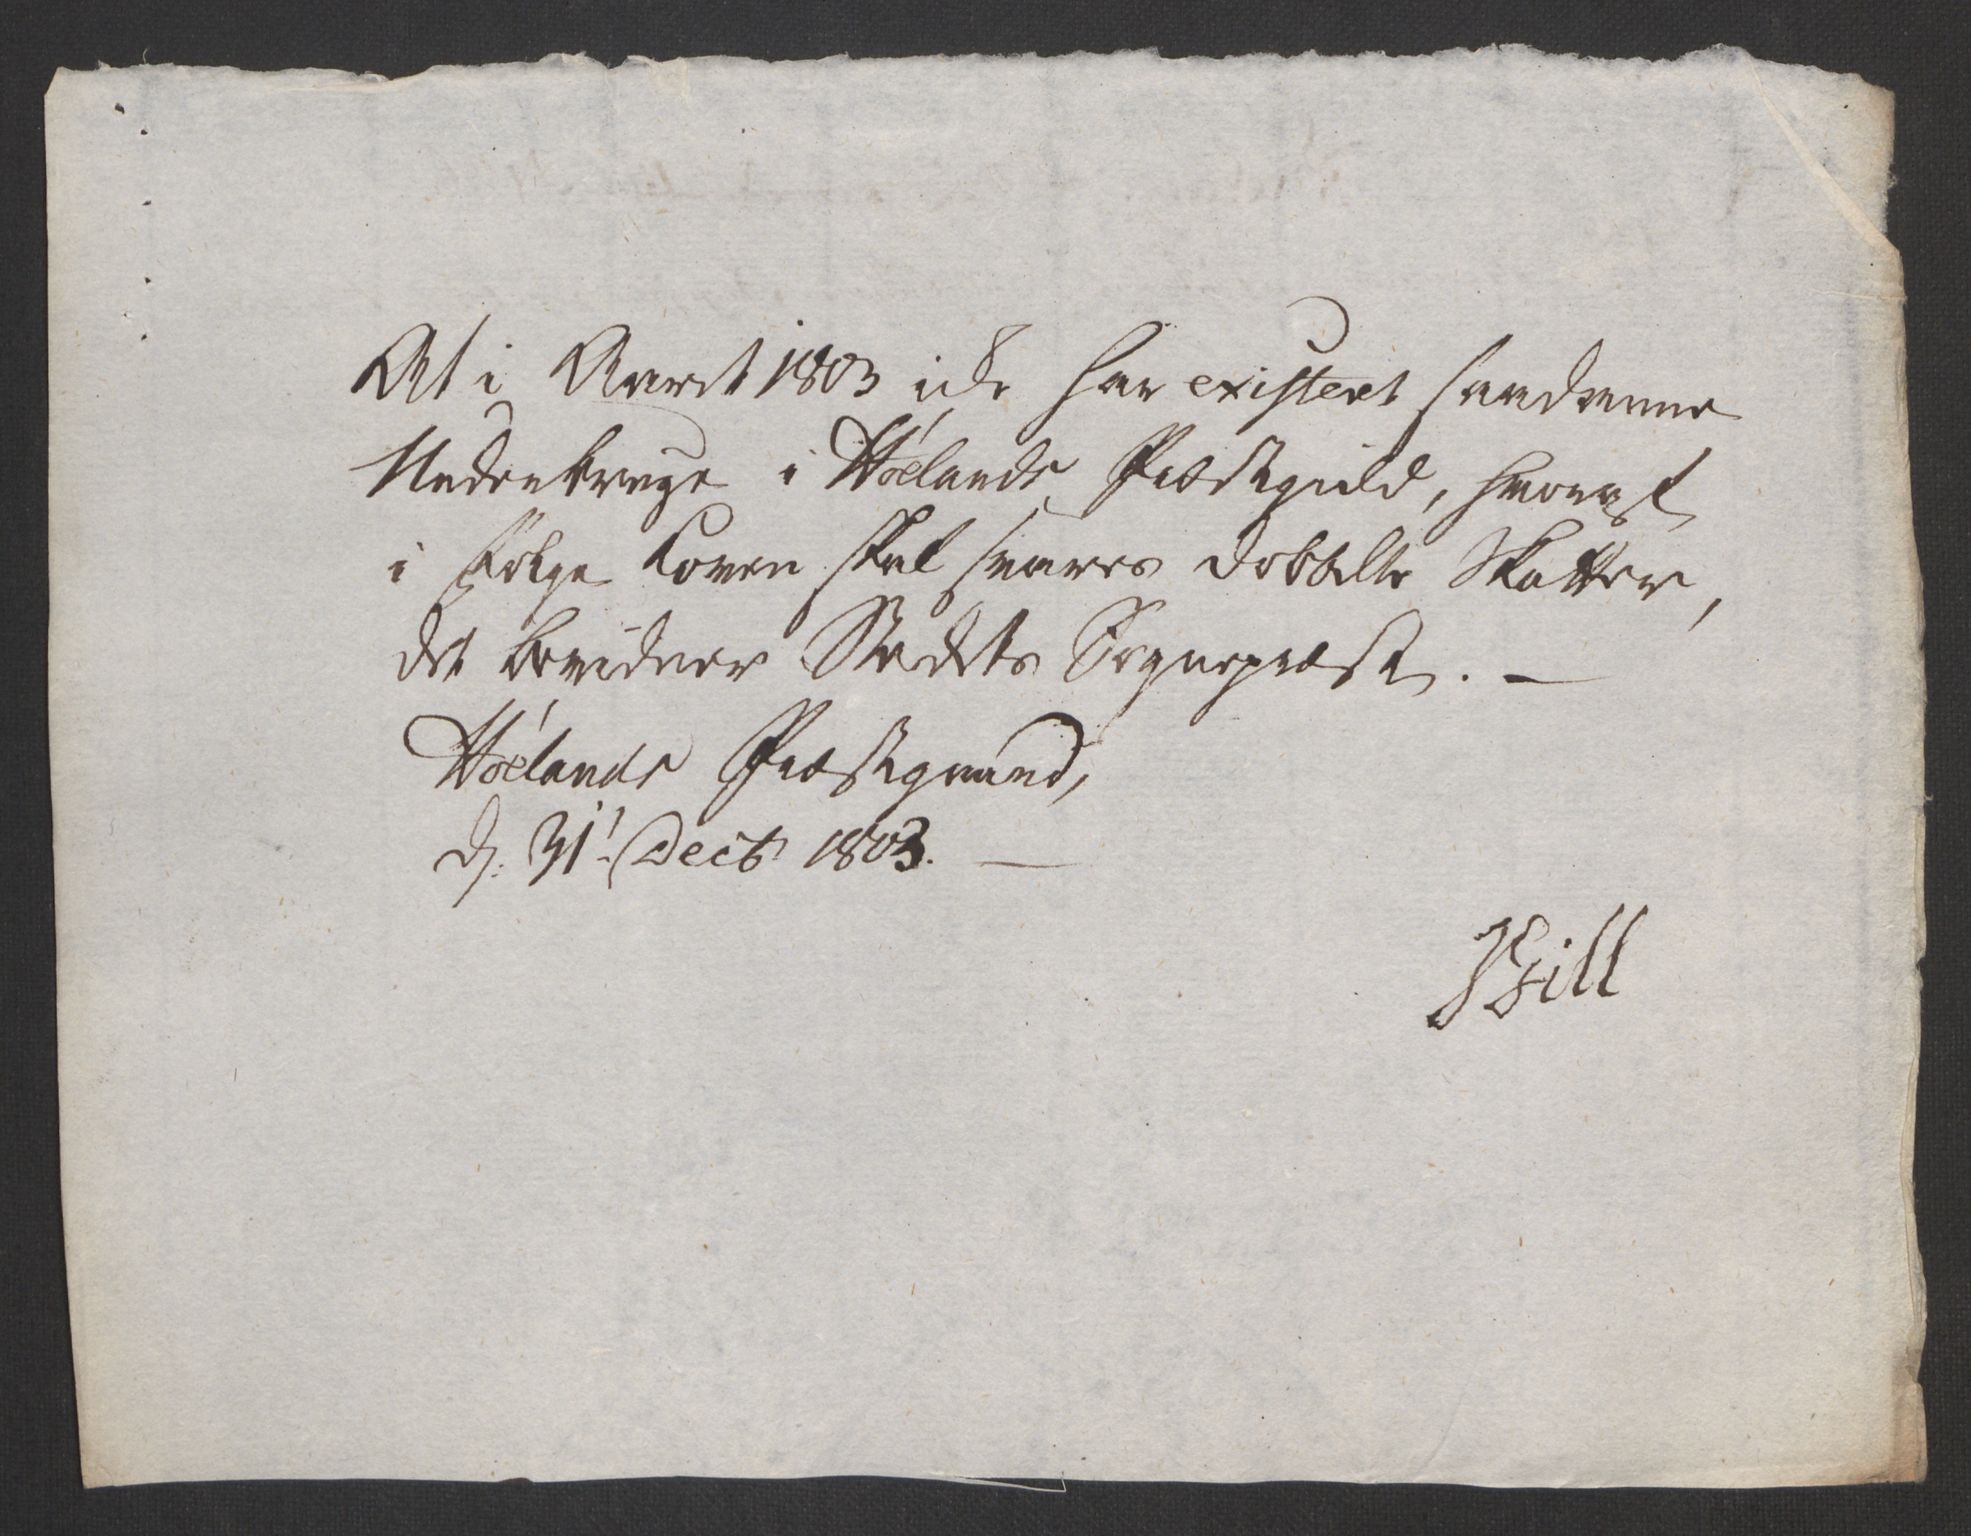 At i Aaret 1803 ikke har existeret saadanne
Underbruge i Hølands Præstegield, hvoraf
i Følge Loven skal svares dobbelte Skatter,
det bevidner Stedets Sognepræst. —
Hølands Præstegaard,
d: 31' Decb 1803. —